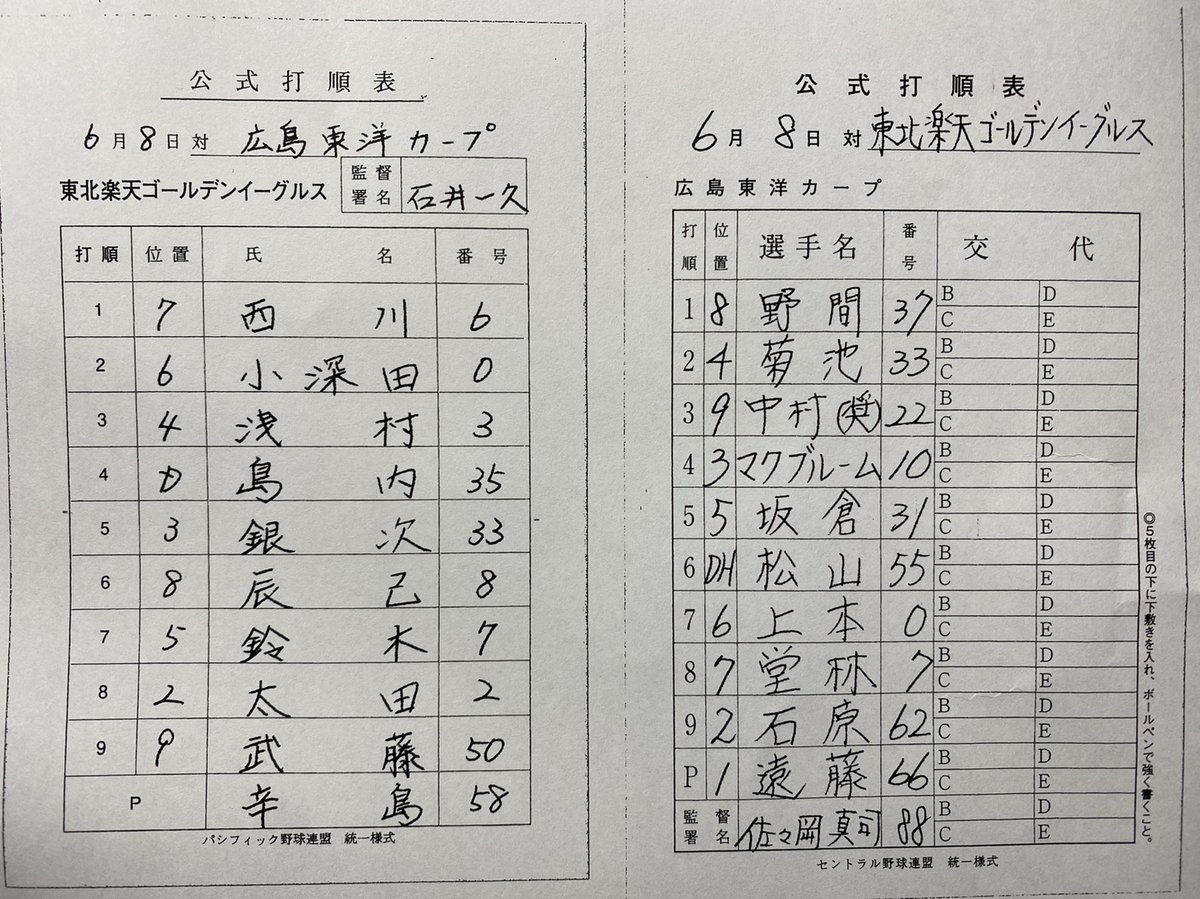 公式打順表
6月8日対 広島東洋カープ
東北楽天ゴールデンイーグルス 監督署名 石井一久
打順 位置 氏名 番号
1 7 西川 6
2 6 小深田 0
3 4 浅村 3
4 D 島内 35
5 3 銀次 33
6 8 辰己 8
7 5 鈴木 7
8 2 太田 2
9 9 武藤 50
P 辛島 58
パシフィック野球連盟 統一様式
公式打順表
6月8日対 東北楽天ゴールデンイーグルス
広島東洋カープ
打順 位置 選手名 番号 交代
1 8 野間 37 B D
C E
2 4 菊池 33 B D
C E
3 9 中村(奨) 22 B D
C E
4 3 マクブルーム 10 B D
C E
5 5 坂倉 31 B D
C E
6 DH 松山 55 B D
C E
7 6 上本 0 B D
C E
8 7 堂林 7 B D
C E
9 2 石原 62 B D
C E
P 1 遠藤 66 B D
C E
監督署名 佐々岡真司 88 B D
C E
セントラル野球連盟 統一様式
◎5枚目の下に下敷きを入れ、ボールペンで強く書くこと。